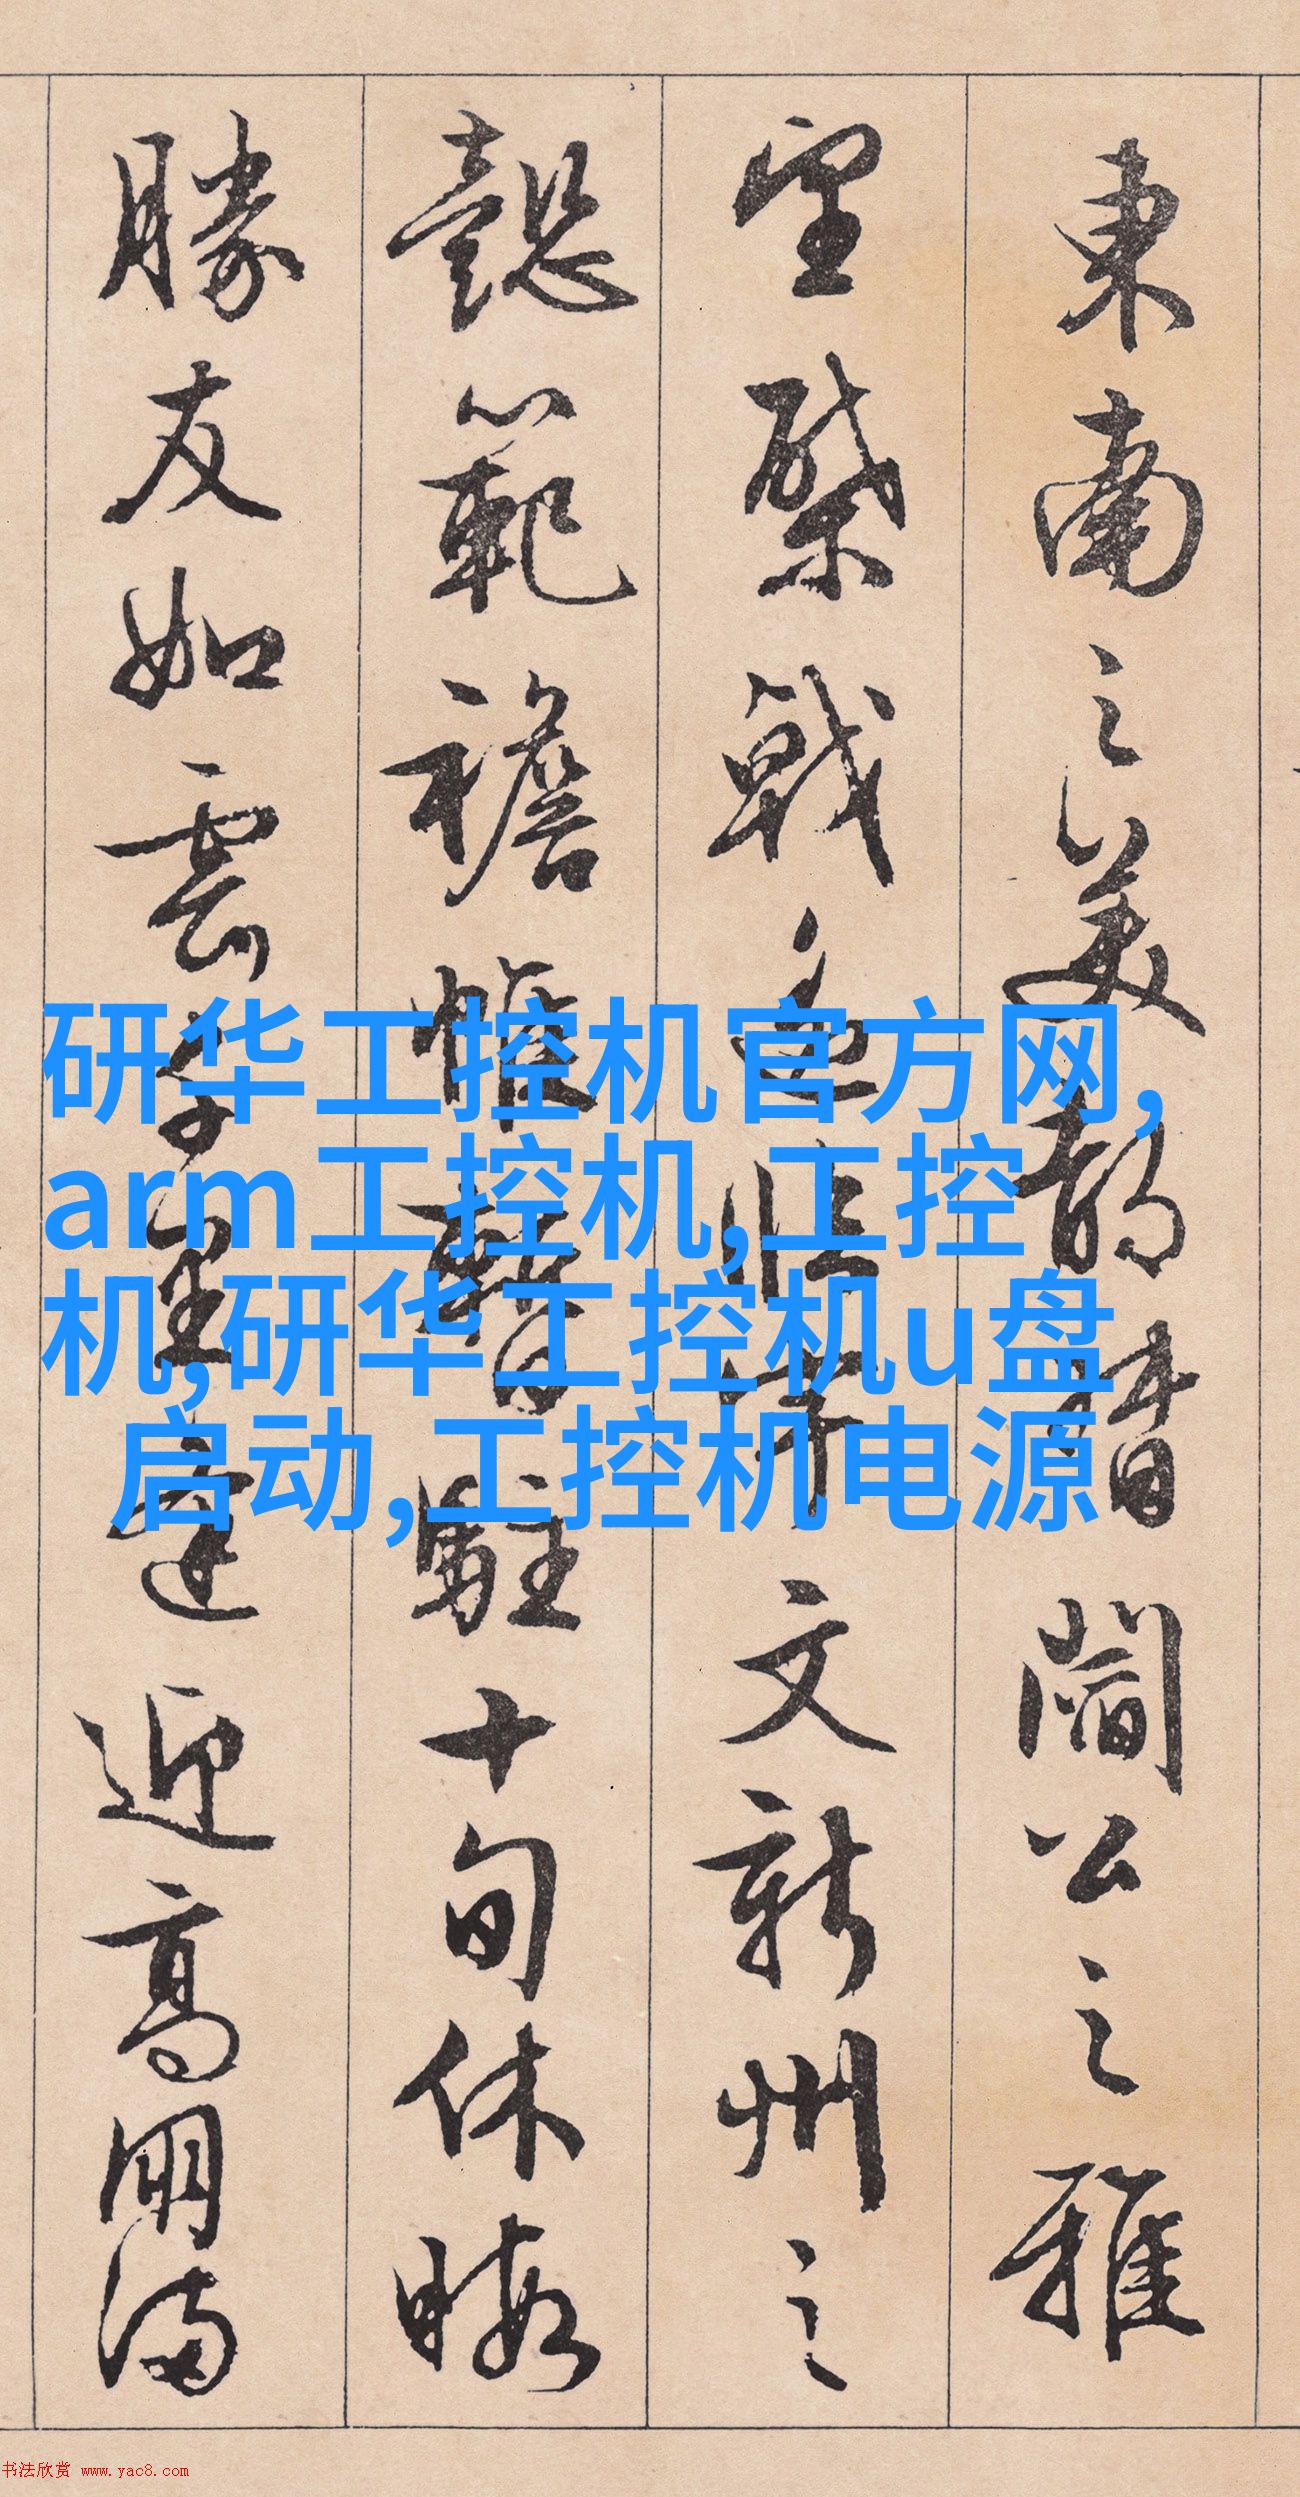 東南之美都督閻公之雅
望棨戟遙臨宇文新州之
懿範襜帷暫駐十旬休暇
勝友如雲千里逢迎高朋滿
研华工控机官方网,
arm工控机,工控
机,研华工控机u盘
启动,工控机电源
书法欣赏 www.yac8.com